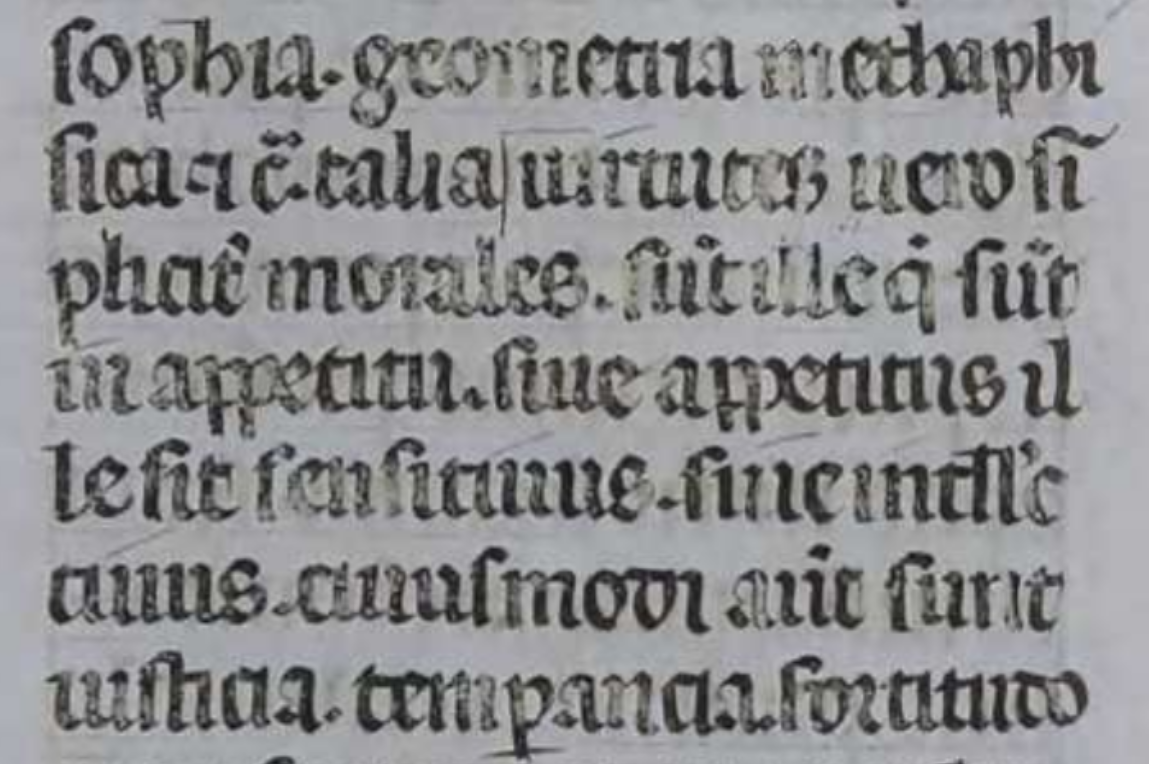 sophia. geometria methaphi
sica. ⁊ c̄. talia uirtutes uero sī
phāē morales. sūt ille q̇ sūt
in appetitu. siue appetitus il
le sit sensitiuus. siue intll'c
tiuus. cuiusmodi aūt sunt
iusticia. temꝑancia. fortitudo